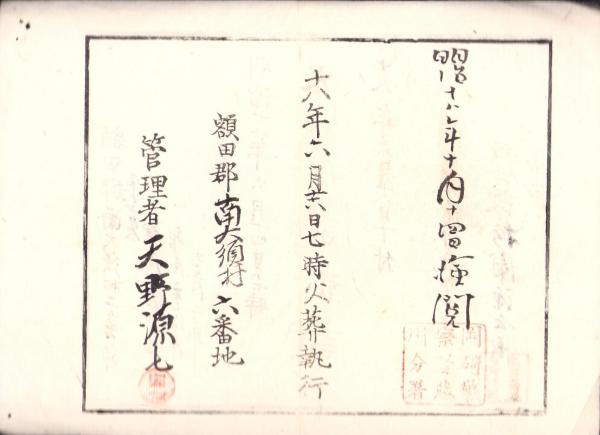 明治十八年十月十四日検閲
岡崎警
察署
川分署
十八年六月廿六日七時火葬執行
額田郡南大須村六番地
管理者 天野源七